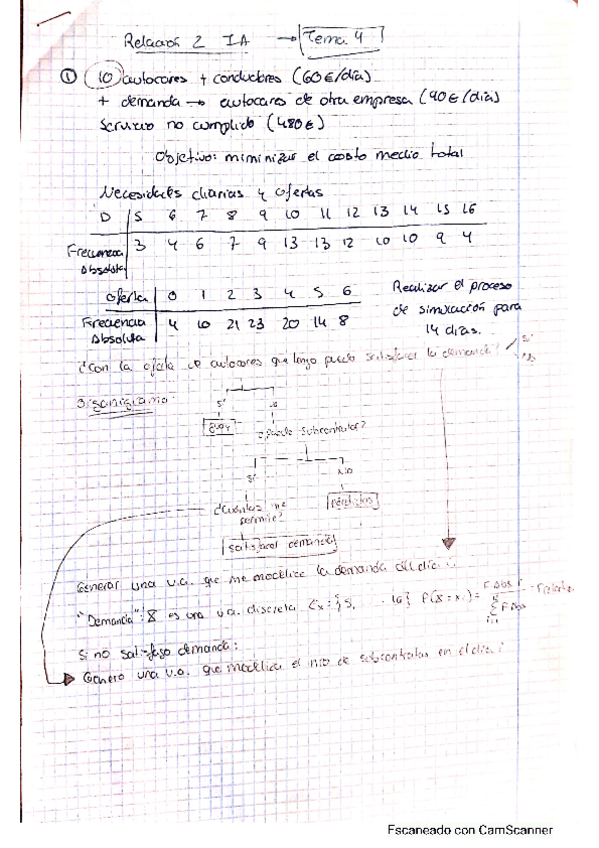 Relación 2 IA → Tema 4
① 10 autocares + conductores (60€/día)
+ demanda → autocares de otra empresa (90€/día)
Servicio no cumplido (480€)
Objetivo: miminizar el costo medio total
Necesidades diarias y ofertas
D 5 6 7 8 9 10 11 12 13 14 15 16
Frecuencia Absoluta 3 4 6 7 9 13 13 12 10 10 9 4
Oferta 0 1 2 3 4 5 6
Frecuencia Absoluta 4 10 21 23 20 14 8
Realizar el proceso
de simulación para
14 días.
¿Con la oferta de autocares que tengo puedo satisfacer la demanda? sí no
Organigrama:
sí no
¿puedo subcontratar?
sí no
¿Cuántos me permite?
pérdidas
satisfacer demanda
Generar una v.a. que me modelice la demanda del día
"Demanda": X es una v.a. discreta
Si no satisfago demanda:
Genero una v.a. que modelice el nro de subcontratas en el día
Escaneado con CamScanner